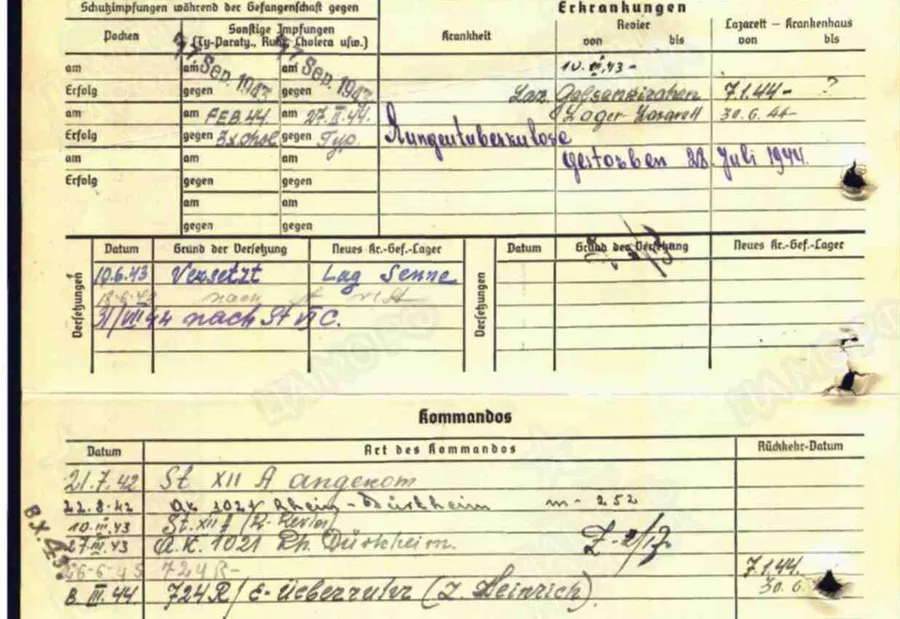 Schutzimpfungen während der Gefangenschaft gegen Erkrankungen
Pocken Sonstige Impfungen (Ty-Paraty., Ruhr, Cholera usw.) Krankheit Revier von bis Lazarett – Krankenhaus von bis
am am 17. Sep. 1943 am 17. Sep. 1943 10. III. 43 -
Erfolg gegen gegen Laz. Gelsenkirchen 7.1.44 - ?
am am FEB. 44 am 27. II. 44. Lager Lazarett 30.6.44 -
Erfolg gegen 3x Chol. gegen Typ. Lungentuberkulose
am am am gestorben 28. Juli 1944.
Erfolg gegen gegen
am am
gegen gegen
Versetzungen Datum Grund der Versetzung Neues Kr.-Gef.-Lager Versetzungen Datum Grund der Versetzung Neues Kr.-Gef.-Lager
10.6.43 Versetzt Lag Senne
nach St
31/VII 44 nach St VI C.
Kommandos
Datum Art des Kommandos Rückkehr-Datum
21.7.42 St XII A angekom
22.8.42 AK 1021 Rhein-Dürkheim m - 252
10. III. 43 St. XII A (K-Revier)
27. III. 43 A.K. 1021 Rh. Dürkheim.
26-6-43 724 R - 7.1.44.
8. III. 44 724 R / E-Ueberruhr (Z. Heinrich). 30.6.